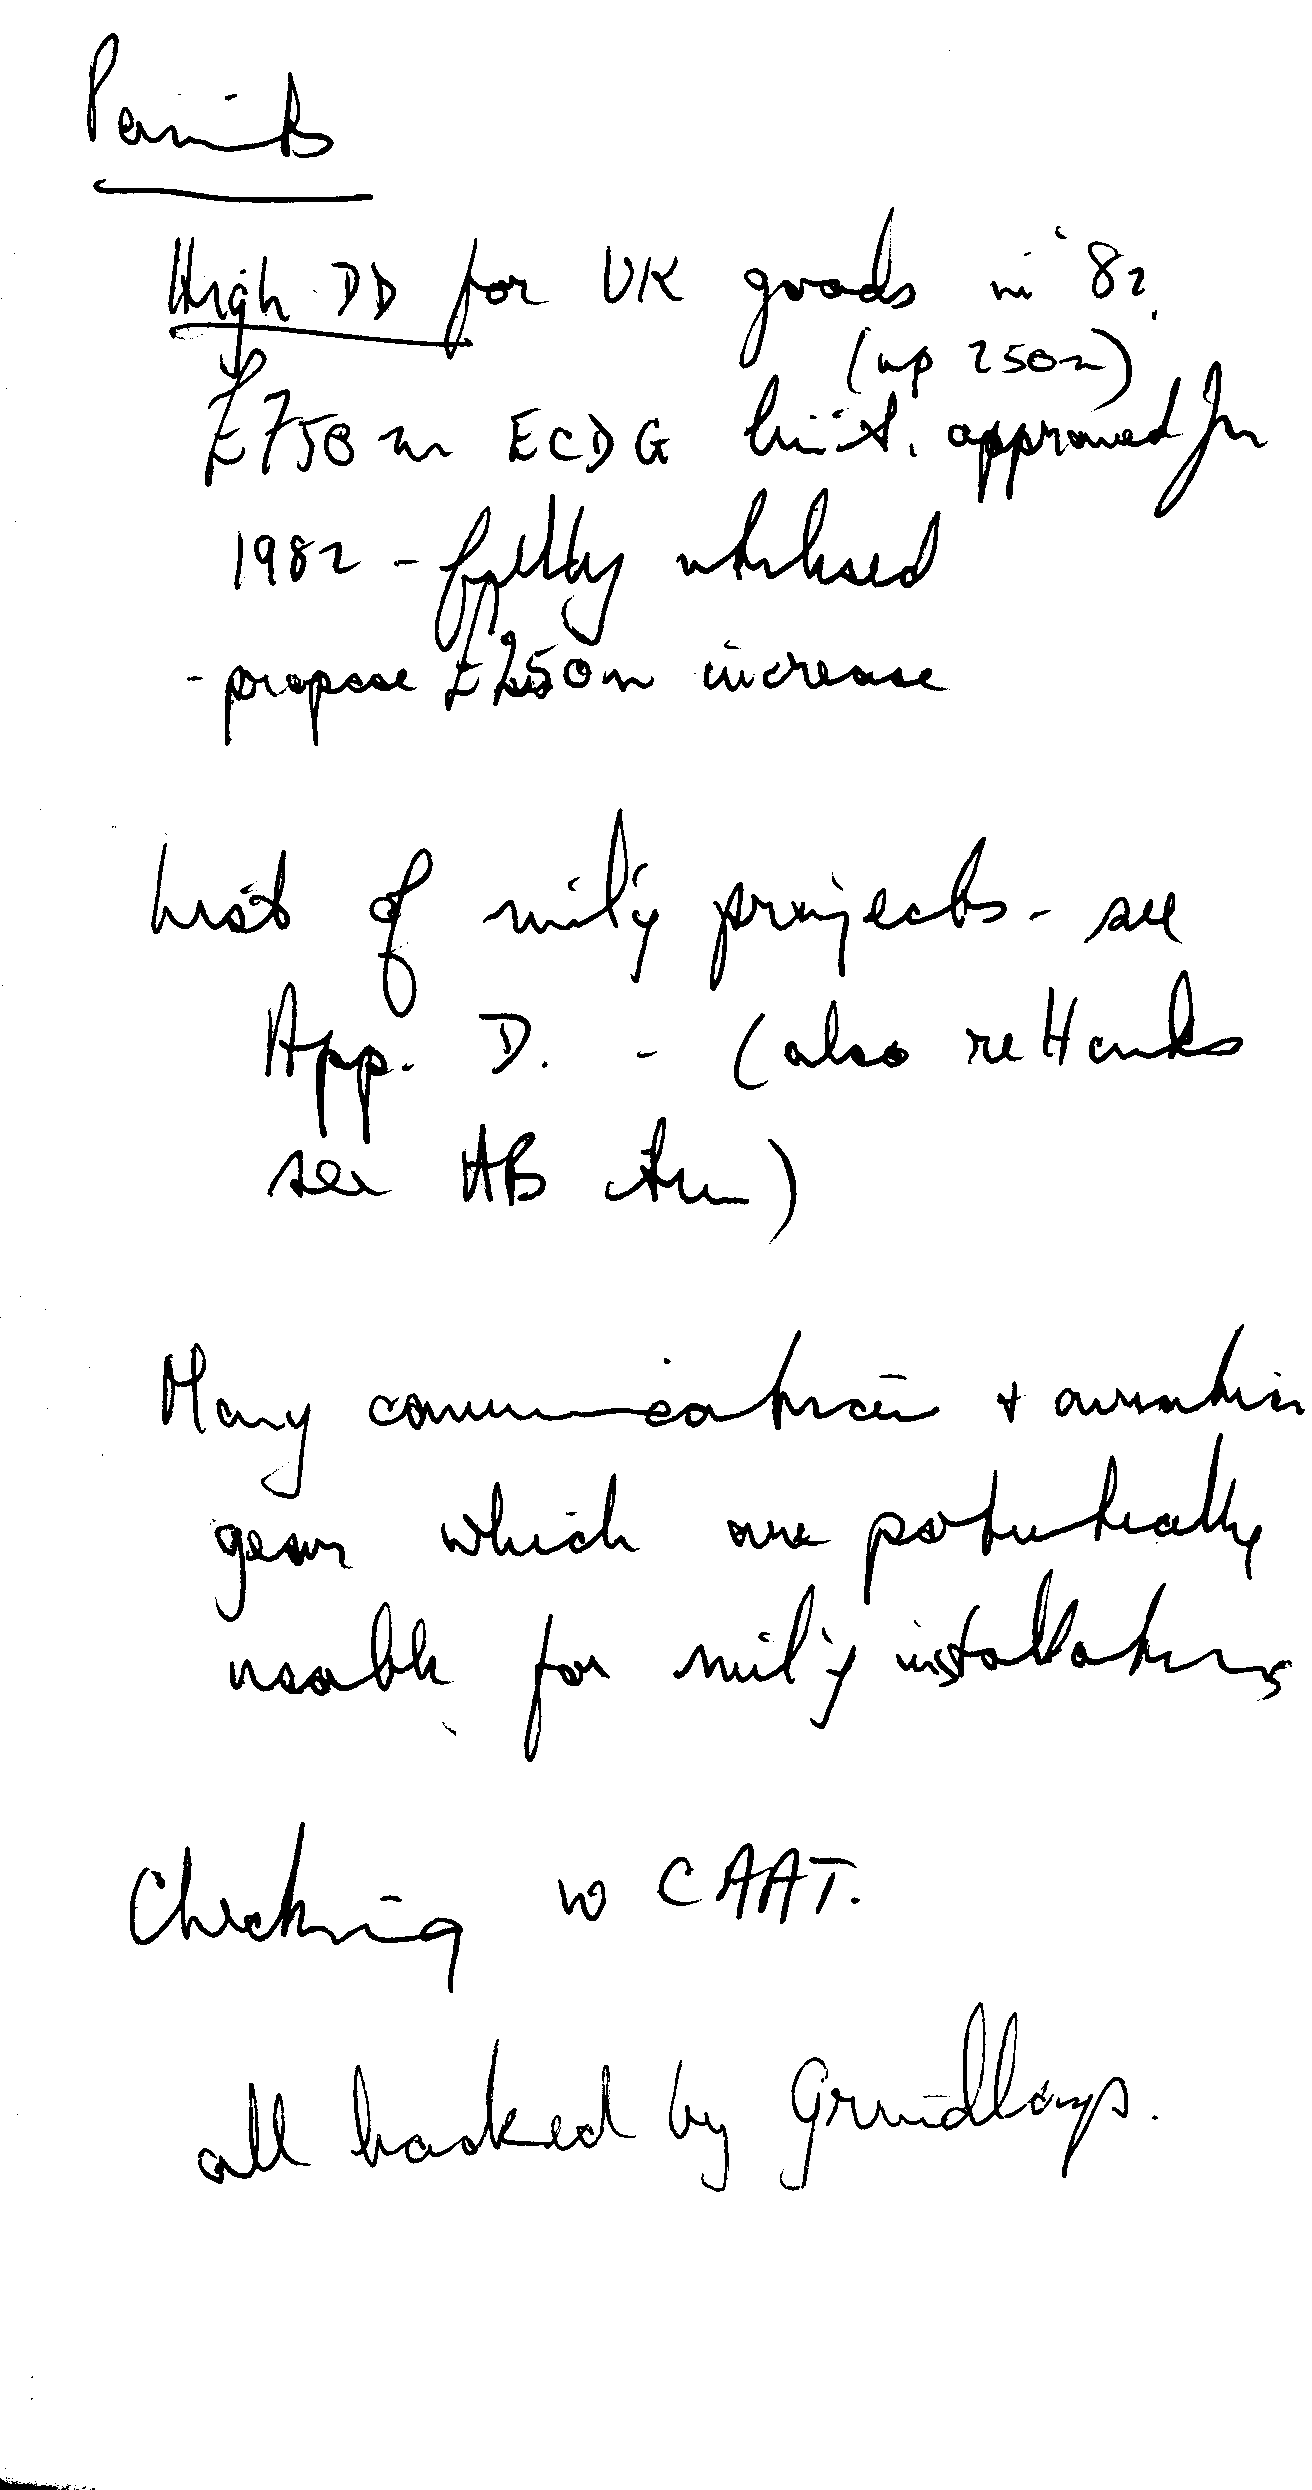 Points
High DD for UK goods in 82.
(up 250m)
£750m ECDG limit. approved for
1982 - fully utilised
- propose £250m increase
List of mil'y projects - see
App. D. - (also re Hawks
see AB item)
Many communication + aviation
gear which are potentially
usable for mil'y installations
Checking w CAAT.
all backed by Grindlays.